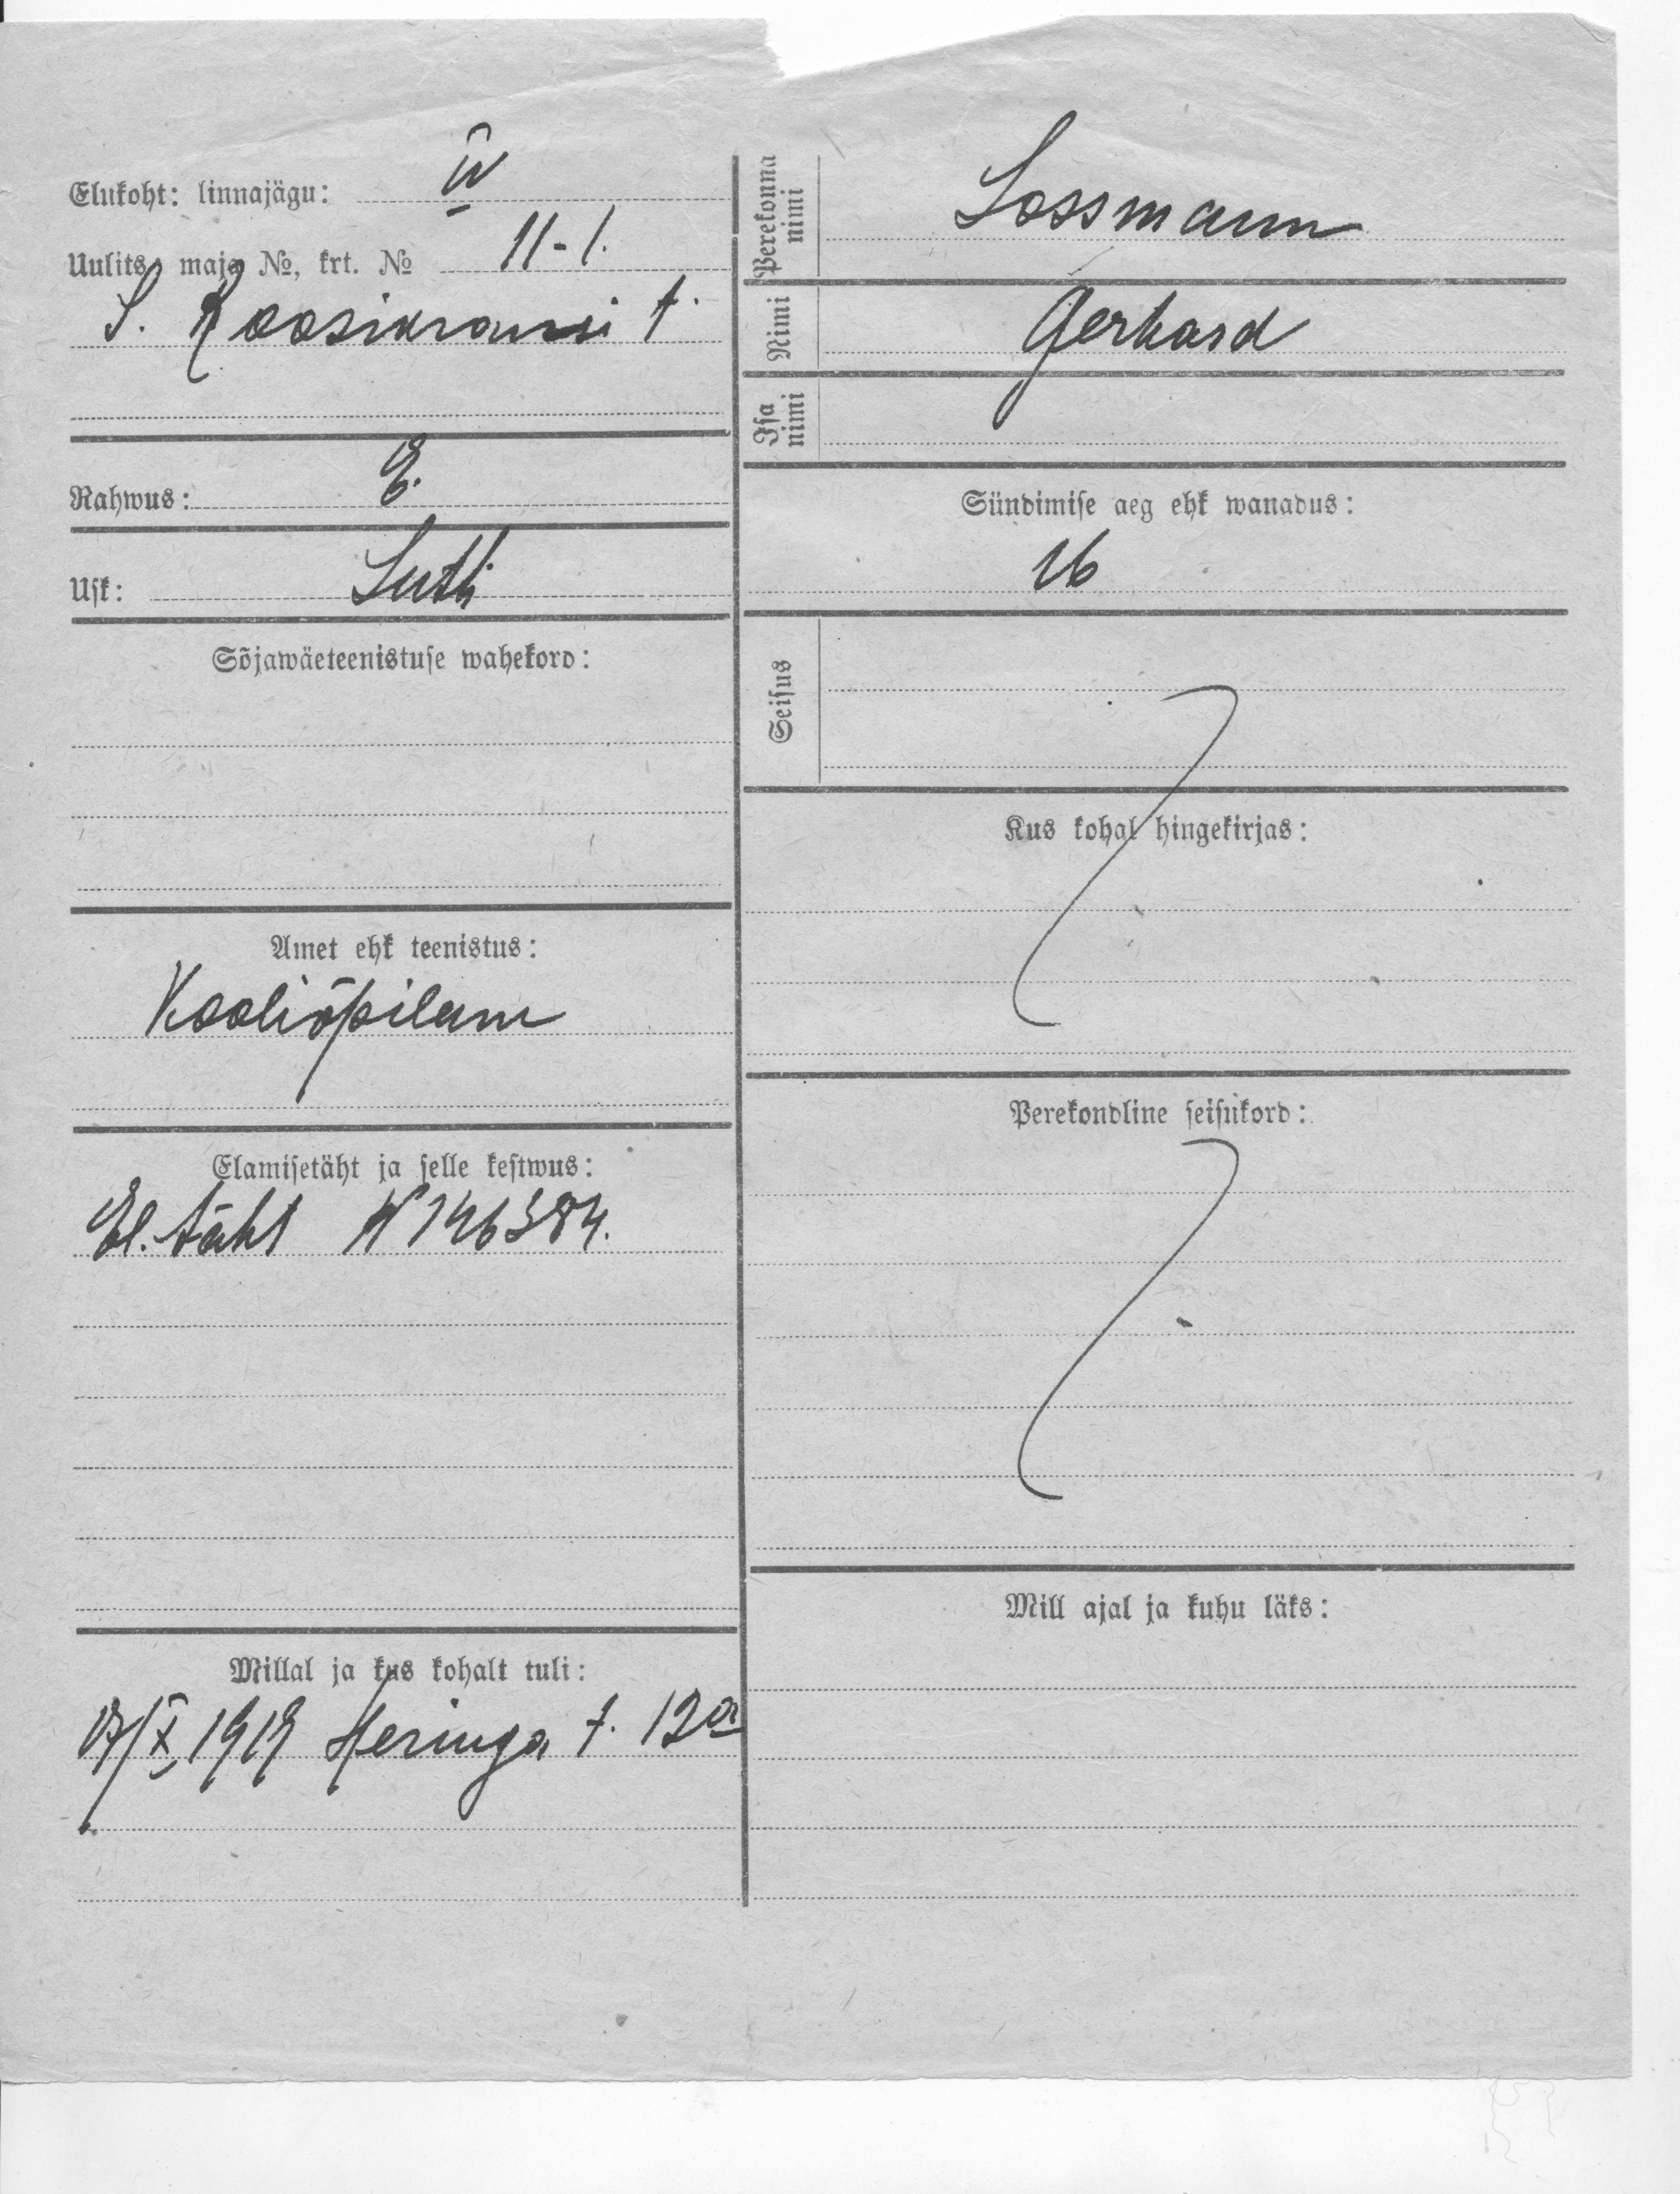 Elukoht: linnajägu: IV
Uulits, maja №, krt. № 11-1.
S. Roosikransi t.
Rahwus: E.
Usk: Luth
Sõjawäeteenistuse wahekord:
Amet ehk teenistus:
Kooliõpilane
Elamisetäht ja selle kestwus:
El. täht N 146384.
Millal ja kus kohalt tuli:
X 1919 Heringa t. 12a
Perekonna nimi Lossmann
Nimi Gerhard
Isa nimi
Sündimise aeg ehk wanadus:
16
Seisus
Kus kohal hingekirjas:
Perekondline seisukord:
Mill ajal ja kuhu läks: